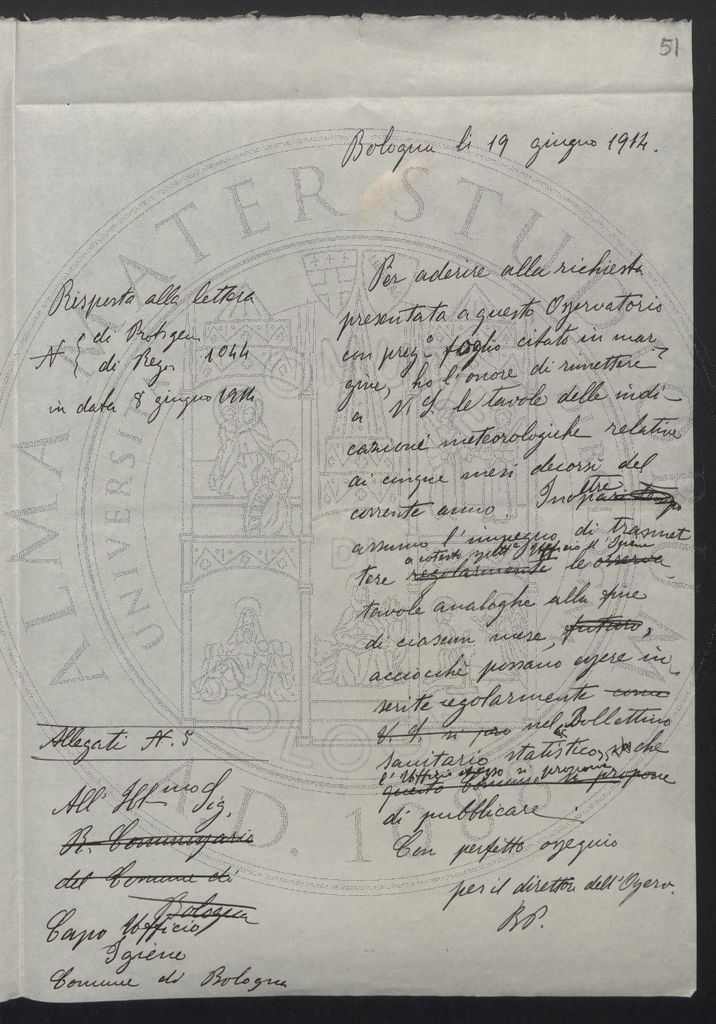 51
Bologna li 19 giugno 1914.
Risposta alla lettera
N { di Protogen
di Regs. 1044
in data 8 giugno 1914
Per aderire alla richiesta
presentata a questo Osservatorio
con preg.o foglio citato in mar
gine, ho l'onore di rimettere
a V. S. le tavole delle indi
cazioni meteorologiche relative
ai cinque mesi decorsi del
corrente anno. Inoltre
assumo l'impegno di trasmet
a cotesto Uff.o d'Igiene
tere regolarmente le osserva
tavole analoghe alla fine
di ciascun mese, futuro,
acciocchè possano essere in
serite regolarmente come
V. S. nel Bollettino
sanitario statistico, che
l'Ufficio stesso si propone
questo Comune si propone
di pubblicare.
Con perfetto ossequio
per il direttore dell'Osserv.
R.P.
Allegati N. 5
All' Ill.mo Sig.
R. Commissario
del Comune di
Bologna
Capo Ufficio
Igiene
Comune di Bologna
ALMA MATER STUDIORUM
A.D. 1088